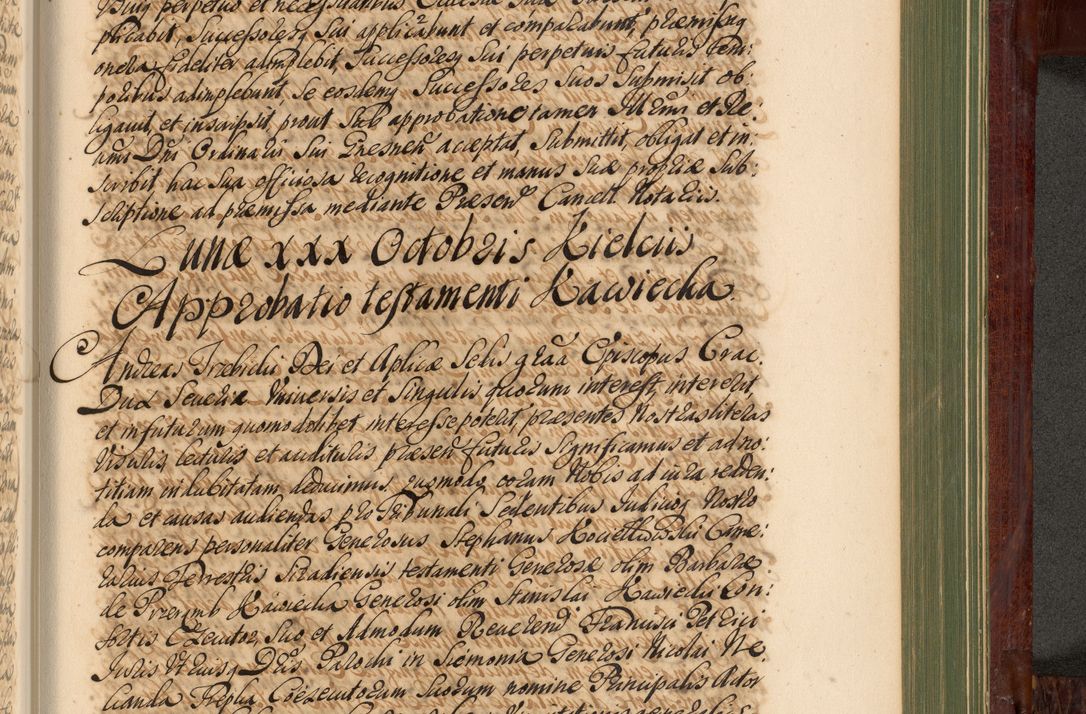 plicabit, Successoresq Sui applicabunt et comparabunt, præmissaq
onera fideliter adimplebit, Successoresq Sui perpetuis futuris tem:
poribus adimplebunt, Se eosdemq Successores Suos Submisit ob:
ligavit, et inscripsit, prout Sub approbatione tamen Illmi et Re:
ami Dni Ordinarii Sui Gnesnen acceptat, Submittit, obligat et in:
scribit hac Sua officiosa recognitione et manus Suæ propriæ Sub:
scriptione ad præmissa mediante Præsen Cancell. Notariis.
Lunæ xxx Octobris Kielciis
Approbatio testamenti Kawiecka.
Andreas Trzebicki Dei et Aplicæ Sedis grãa Episcopus Crac.
Dux Severiæ Universis et Singulis quorum interest, intererit,
et in futurum quomodolibet interesse poterit, præsentes Nostras literas
Visuris, lecturis et audituris præsen futuris Significamus et ad no:
titiam indubitatam deducimus, quomodo coram Nobis ad iura redden:
da et causas audiendas pro Tribunali Sedentibus Iudicioq Nostro
comparens personaliter Generosus Stephanus Came:
rarius Terrestris Siradiensis testamenti Generosæ olim Barbaræ
de Przeręmb Kawiecka Generosi olim Stanislai Kawiecki Con:
sortis Executor, Suo et Admodum Reverend Francisci Petrici
Iuris Utriusq Dris Parochi in Siemonia Generosi Nicolai Ne
canda Trepka Coexecutorum Suorum nomine Principalis Actor